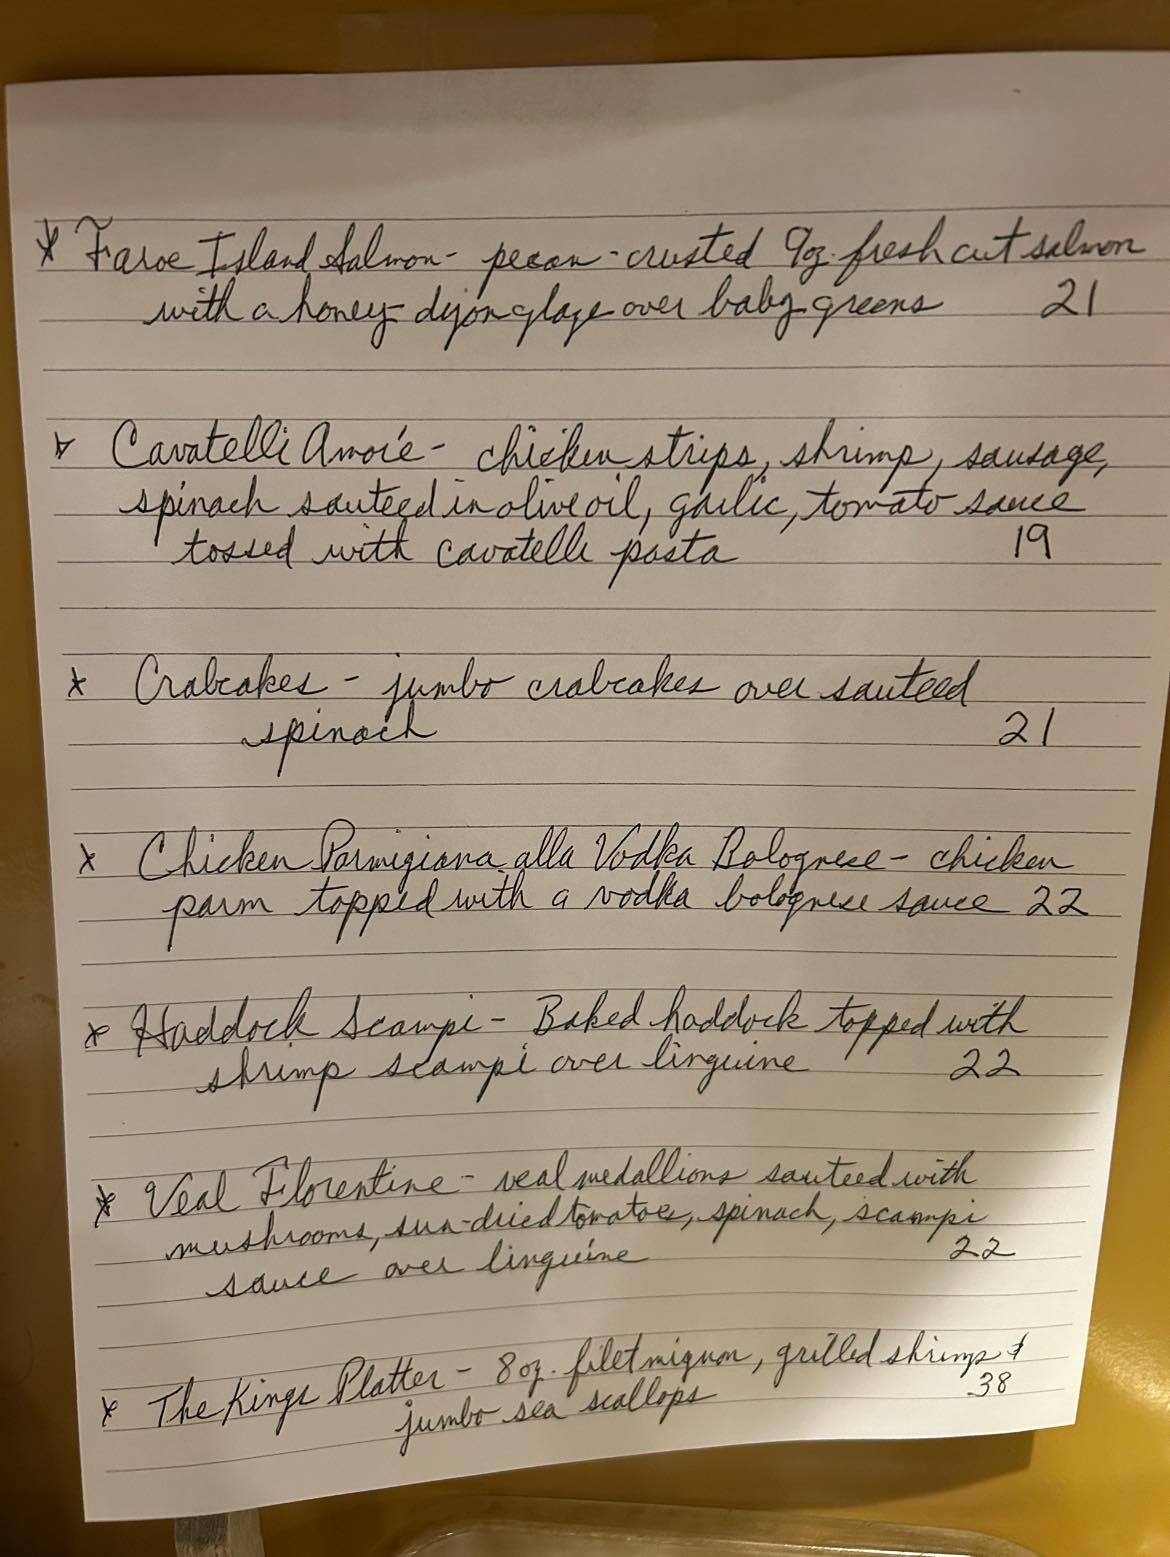 * Faroe Island Salmon - pecan-crusted 9oz. fresh cut salmon
with a honey-dijon glaze over baby greens 21
* Cavatelli Amoré - chicken strips, shrimp, sausage,
spinach sauteed in olive oil, garlic, tomato sauce
tossed with cavatelli pasta 19
* Crabcakes - jumbo crabcakes over sauteed
spinach 21
* Chicken Parmigiana alla Vodka Bolognese - chicken
parm topped with a vodka bolognese sauce 22
* Haddock Scampi - Baked haddock topped with
shrimp scampi over linguine 22
* Veal Florentine - veal medallions sauteed with
mushrooms, sun-dried tomatoes, spinach, scampi
sauce over linguine 22
* The Kings Platter - 8oz. filet mignon, grilled shrimp &
jumbo sea scallops 38